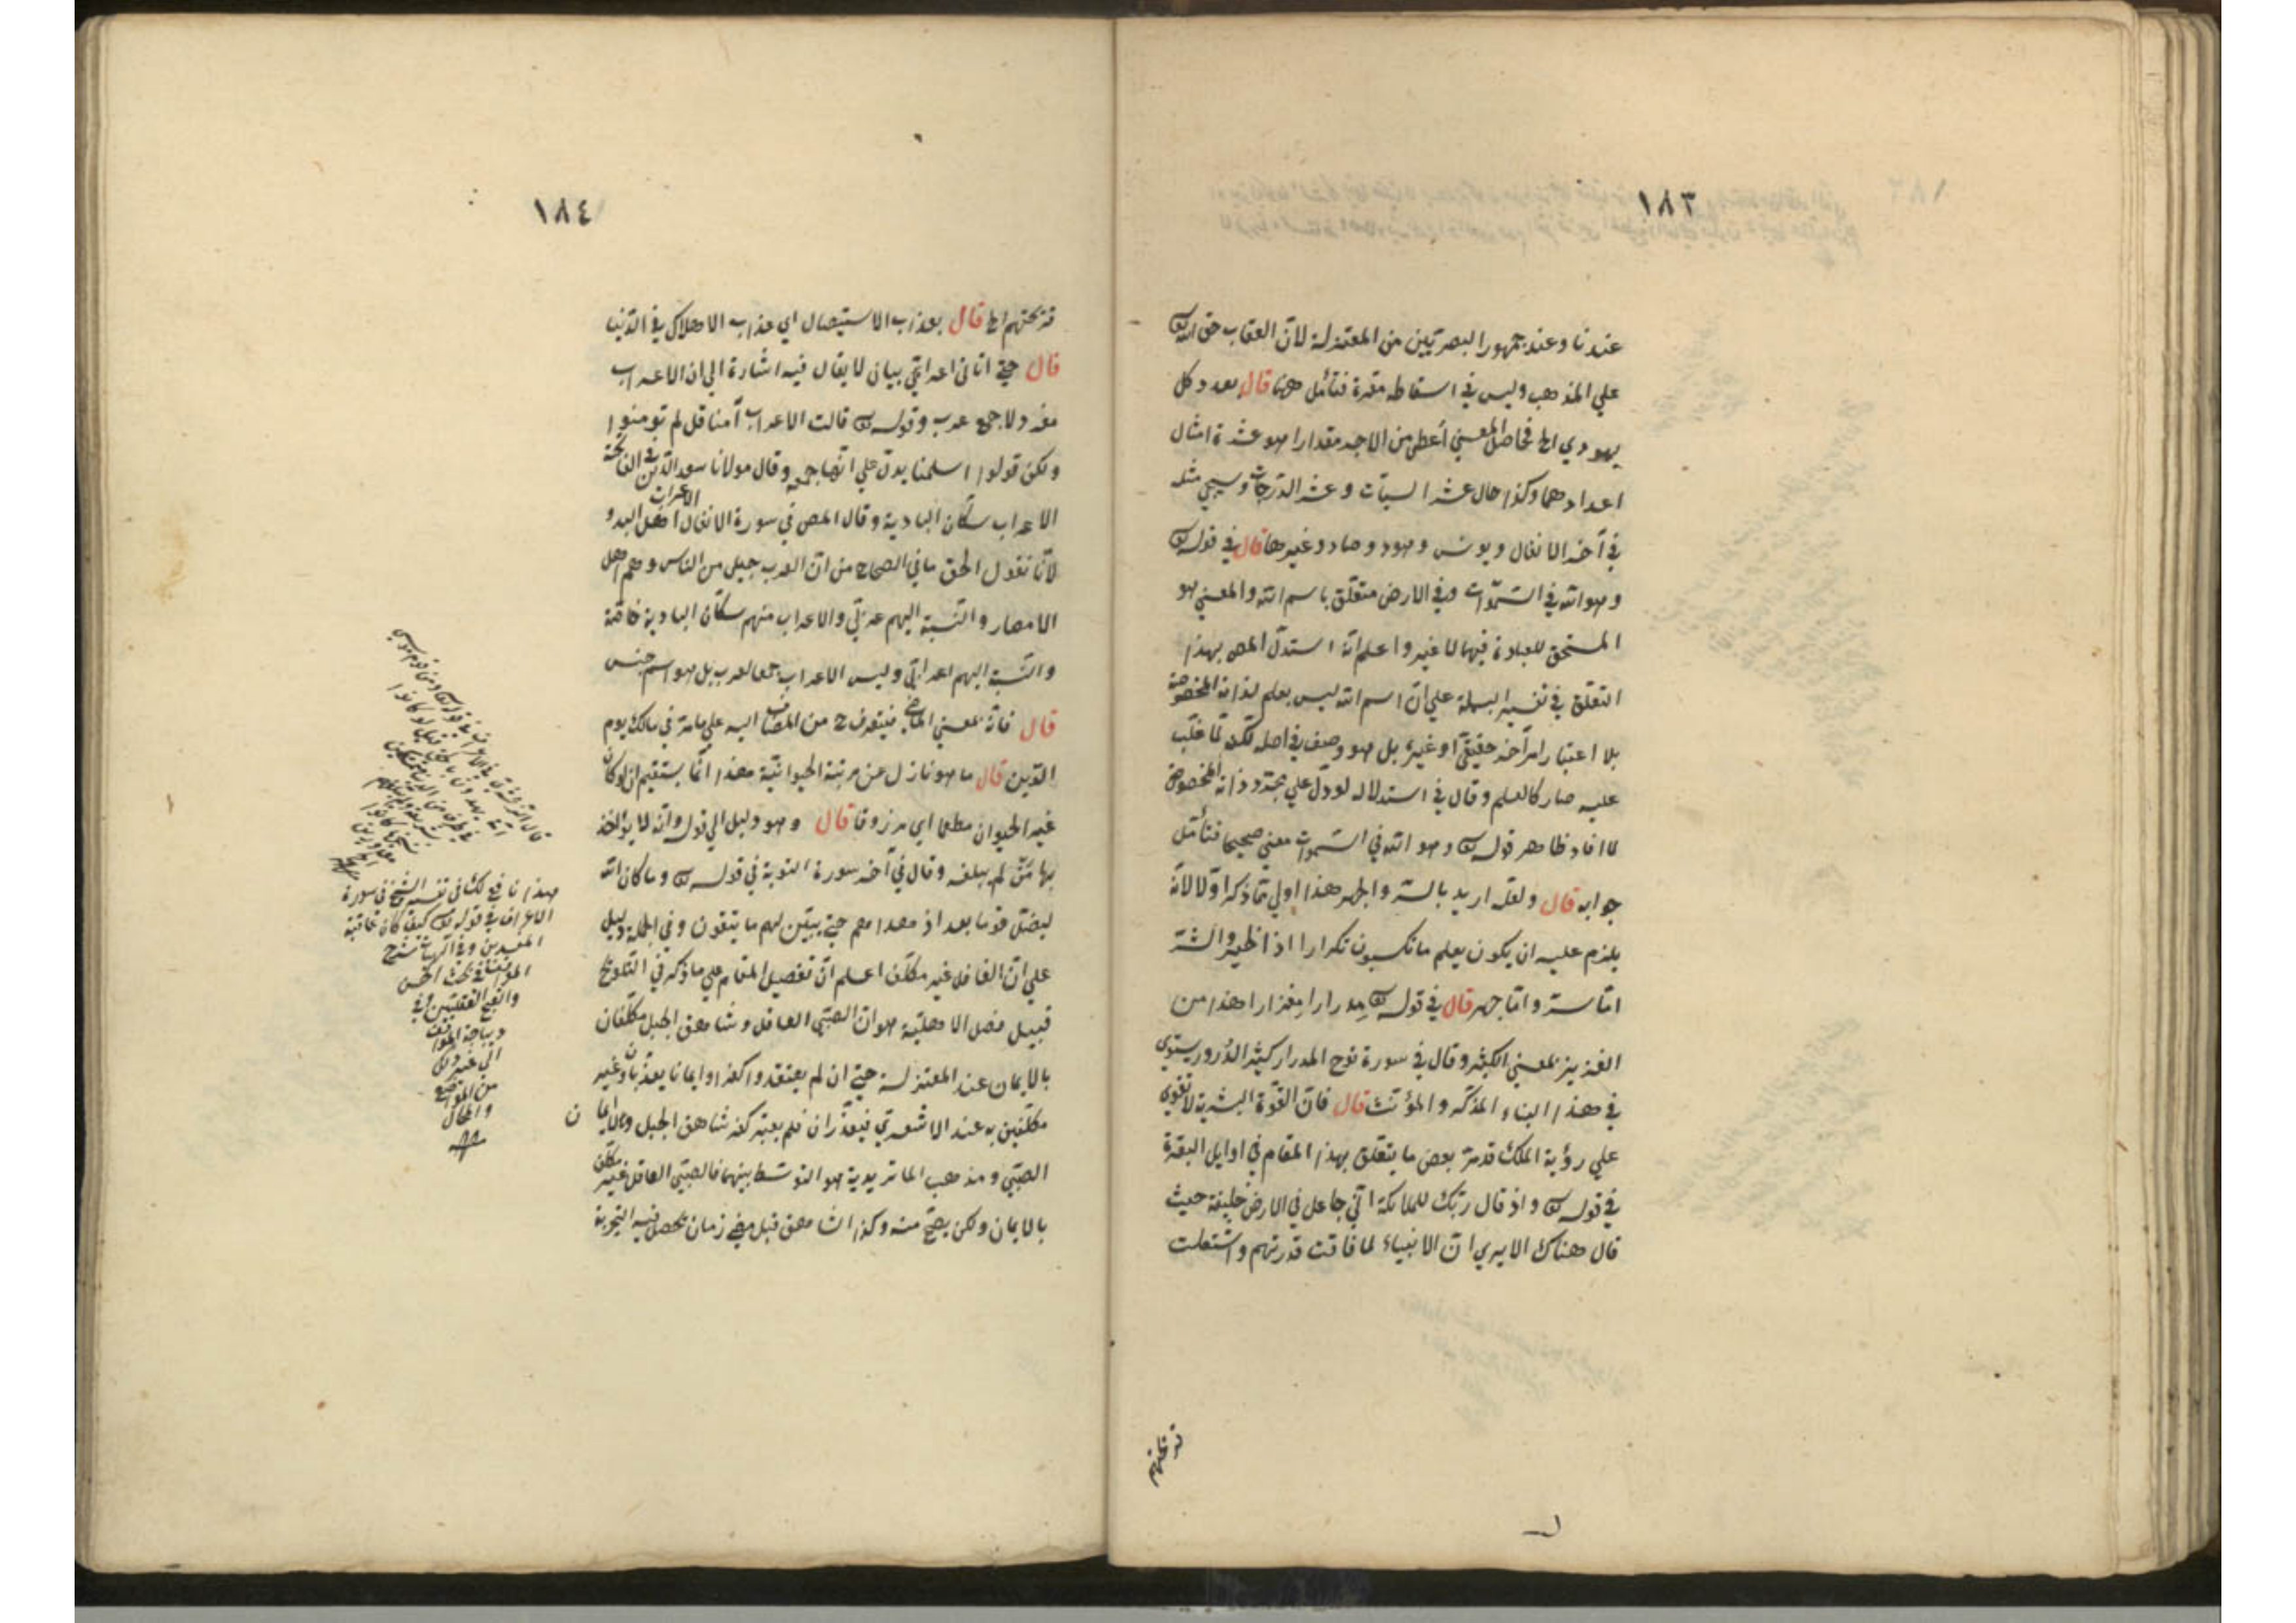 ١٨٣
عندنا وعند جمهور البصريين من المعتزلة لان العقاب حق الله تع
علي المذهب وليس في اسقاطه مضرة فتأمل ههنا قال بعدد كل
يهودي الخ فحاصل المعني أعطي من الاجر مقدارا هو عشرة امثال
اعدادهما وكذا حال عشر السيآت وعشر الدرجات وسيجي مثله
في آخر الانفال ويونس وهود وصاد وغيرها قال في قوله تع
وهو الله في السموات وفي الارض متعلق باسم الله والمعني هو
المستحق للعبادة فيهما لا غير واعلم انه استدل المص بهذا
التعلق في تفسير البسملة علي ان اسم الله ليس بعلم لذاته المخصوصة
بلا اعتبار امر آخر حقيقي او غيره بل هو وصف في اصله لكنه لما غلب
عليه صار كالعلم وقال في استدلاله لو دل علي مجرد ذاته المخصوص
لما افاد ظاهر قوله تع وهو الله في السموات معني صحيحا فتأمل
جوابه قال ولعله اريد بالسر والجهر هذا اولي مما ذكر اولا لانه
يلزم عليه ان يكون يعلم ما تكسبون تكرارا اذ الخير والشر
اما سر واما جهر قال في قوله تع مدرارا مغزارا هذا من
الغزير بمعني الكثير وقال في سورة نوح المدرار كثير الدرور يستوي
في هذا البناء المذكر والمؤنث قال فان القوة البشرية لا تقوي
علي رؤية الملك قد مر بعض ما يتعلق بهذا المقام في اوايل البقرة
في قوله تع واذ قال ربك للملائكة اني جاعل في الارض خليفة حيث
قال هناك الا يري ان الانبياء لما فاقت قدرتهم واشتعلت
١٨٤
الخ قال بعذاب الاستيصال اي عذاب الاهلاك في الدنيا
قال حتي اتاني اعرابي بيان لا يقال فيه اشارة الي ان الاعراب
مفرد لا جمع عرب وقوله تع قالت الاعراب آمنا قل لم تومنوا
ولكن قولوا اسلمنا يدل علي انها جمع وقال مولانا سعد الدين في الفاتحة
الاعراب سكان البادية وقال المص في سورة الانفال الاعراب اهل البدو
لانا نقول الحق ما في الصحاح من ان العرب جيل من الناس وهم اهل
الامصار والنسبة اليهم عربي والاعراب منهم سكان البادية خاصة
والنسبة اليهم اعرابي وليس الاعراب جمعا لعرب بل هو اسم جنس
قال فانه بمعني الماضي فيتعرف ح من المضاف اليه علي ما مر في مالك يوم
الدين قال ما هو نازل عن مرتبة الحيوانية هذا انما يستقيم ان لو كان
غير الحيوان مطعما اي مرزوقا قال وهو دليل الي قوله وانه لا يؤاخذ
بها من لم يبلغه وقال في آخر سورة التوبة في قوله تع وما كان الله
ليضل قوما بعد اذ هداهم حتي يبين لهم ما يتقون وفي الجملة دليل
علي ان الغافل غير مكلف اعلم ان تفصيل المقام علي ما ذكر في التلويح
قبيل فصل الاهلية هو ان الصبي العاقل وشاهق الجبل مكلفان
بالايمان عند المعتزلة حتي ان لم يعتقدوا كفرا وايمانا يعذبان وغير
مكلفين به عند الاشعري فيعذران فلم يعتبر كفر شاهق الجبل ولا ايمان
الصبي ومذهب الماتريدية هو التوسط بينهما فالصبي العاقل غير مكلف
بالايمان ولكن يصح منه وكذا الشاهق قبل مضي زمان يحصل فيه التجربة
هذا نافع لكشاف تفسير الشيخ في سورة
الاعراف في قوله تع كيف كان عاقبة
المفسدين وفي الهيات شرح
المواقف في بحث الحسن
والقبح العقليين وفي
ديباجة المواقف
الي غير ذلك
من المواضع
والمحال